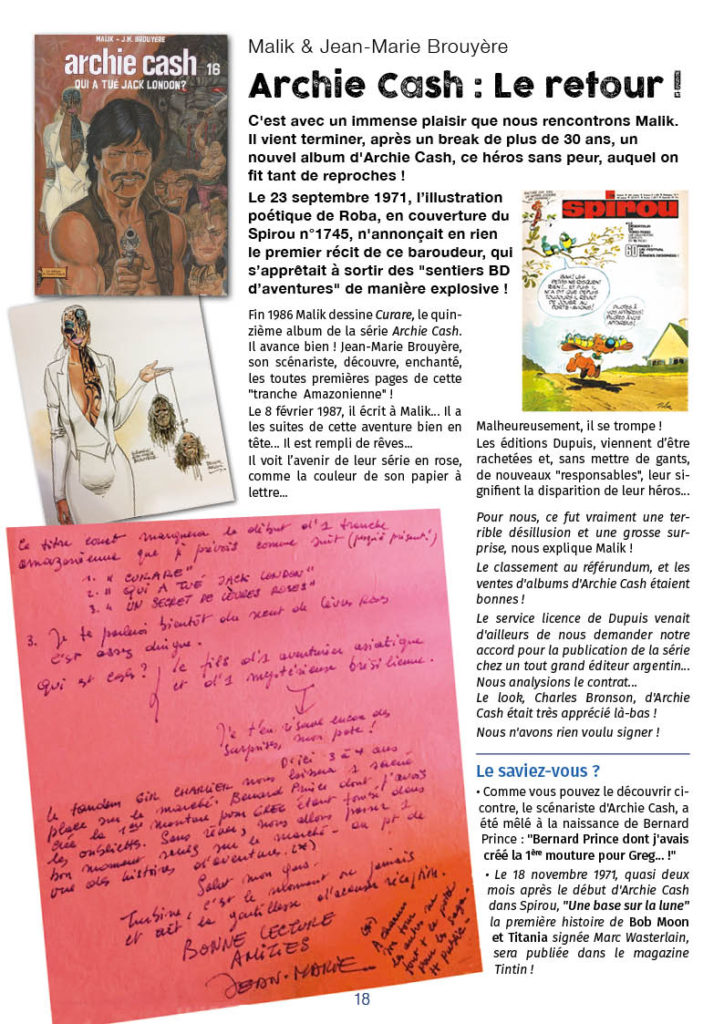 MALIK - J.M. BROUYÈRE
archie cash 16
QUI A TUÉ JACK LONDON?
Malik & Jean-Marie Brouyère
Archie Cash : Le retour !
C'est avec un immense plaisir que nous rencontrons Malik.
Il vient terminer, après un break de plus de 30 ans, un
nouvel album d'Archie Cash, ce héros sans peur, auquel on
fit tant de reproches !
Le 23 septembre 1971, l'illustration
poétique de Roba, en couverture du
Spirou n°1745, n'annonçait en rien
le premier récit de ce baroudeur, qui
s'apprêtait à sortir des "sentiers BD
d'aventures" de manière explosive !
Fin 1986 Malik dessine Curare, le quin-
zième album de la série Archie Cash.
Il avance bien ! Jean-Marie Brouyère,
son scénariste, découvre, enchanté,
les toutes premières pages de cette
"tranche Amazonienne" !
Le 8 février 1987, il écrit à Malik... Il a
les suites de cette aventure bien en
tête... Il est rempli de rêves...
Il voit l'avenir de leur série en rose,
comme la couleur de son papier à
lettre...
spirou
60
BAH! LES
PETITS NE RISQUENT
RIEN!... ET PUIS
DEPUIS
TOUJOURS IL RÊVAIT
DE JOUER AU
PORTE-AVIONS!
PILOTES À
VOS APPAREILS!
PILOTES À VOS
APPAREILS!
Roba
Malheureusement, il se trompe !
Les éditions Dupuis, viennent d'être
rachetées et, sans mettre de gants,
de nouveaux "responsables", leur si-
gnifient la disparition de leur héros...
Pour nous, ce fut vraiment une ter-
rible désillusion et une grosse sur-
prise, nous explique Malik !
Le classement au référendum, et les
ventes d'albums d'Archie Cash étaient
bonnes !
Le service licence de Dupuis venait
d'ailleurs de nous demander notre
accord pour la publication de la série
chez un tout grand éditeur argentin...
Nous analysions le contrat...
Le look, Charles Bronson, d'Archie
Cash était très apprécié là-bas !
Nous n'avons rien voulu signer !
Ce titre court marquera le début d'1 tranche
amazonienne que je prévois comme suit (projet présent!)
1. "CURARE"
2. "QUI A TUÉ JACK LONDON"
3. "UN SECRET DE LÈVRES ROSES"
3. Je te parlerai bientôt du secret de lèvres roses
c'est assez dingue.
Qui est cash? le fils d'1 aventurier asiatique
et d'1 mystérieuse brésilienne.
J'te réserve encore des
surprises, mon pote!
D'ici 3 à 4 ans
le tandem GIR CHARLIER nous laissera 1 sacrée
place sur le marché. Bernard Prince dont j'avais
créé la 1ère mouture pour GREG étant foutu dans
les oubliettes. Sans rêver, nous allons passer 1
bon moment seuls sur le marché - au pt de
vue des histoires d'aventure. (*)
Salut mon gars.
Turbine, c'est le moment ou jamais
et ait la gentillesse d'accuser réception.
BONNE LECTURE
AMITIÉS
JEAN-MARIE
Le saviez-vous ?
• Comme vous pouvez le découvrir ci-
contre, le scénariste d'Archie Cash, a
été mêlé à la naissance de Bernard
Prince : "Bernard Prince dont j'avais
créé la 1ère mouture pour Greg... !"
• Le 18 novembre 1971, quasi deux
mois après le début d'Archie Cash
dans Spirou, "Une base sur la lune"
la première histoire de Bob Moon
et Titania signée Marc Wasterlain,
sera publiée dans le magazine
Tintin !
18